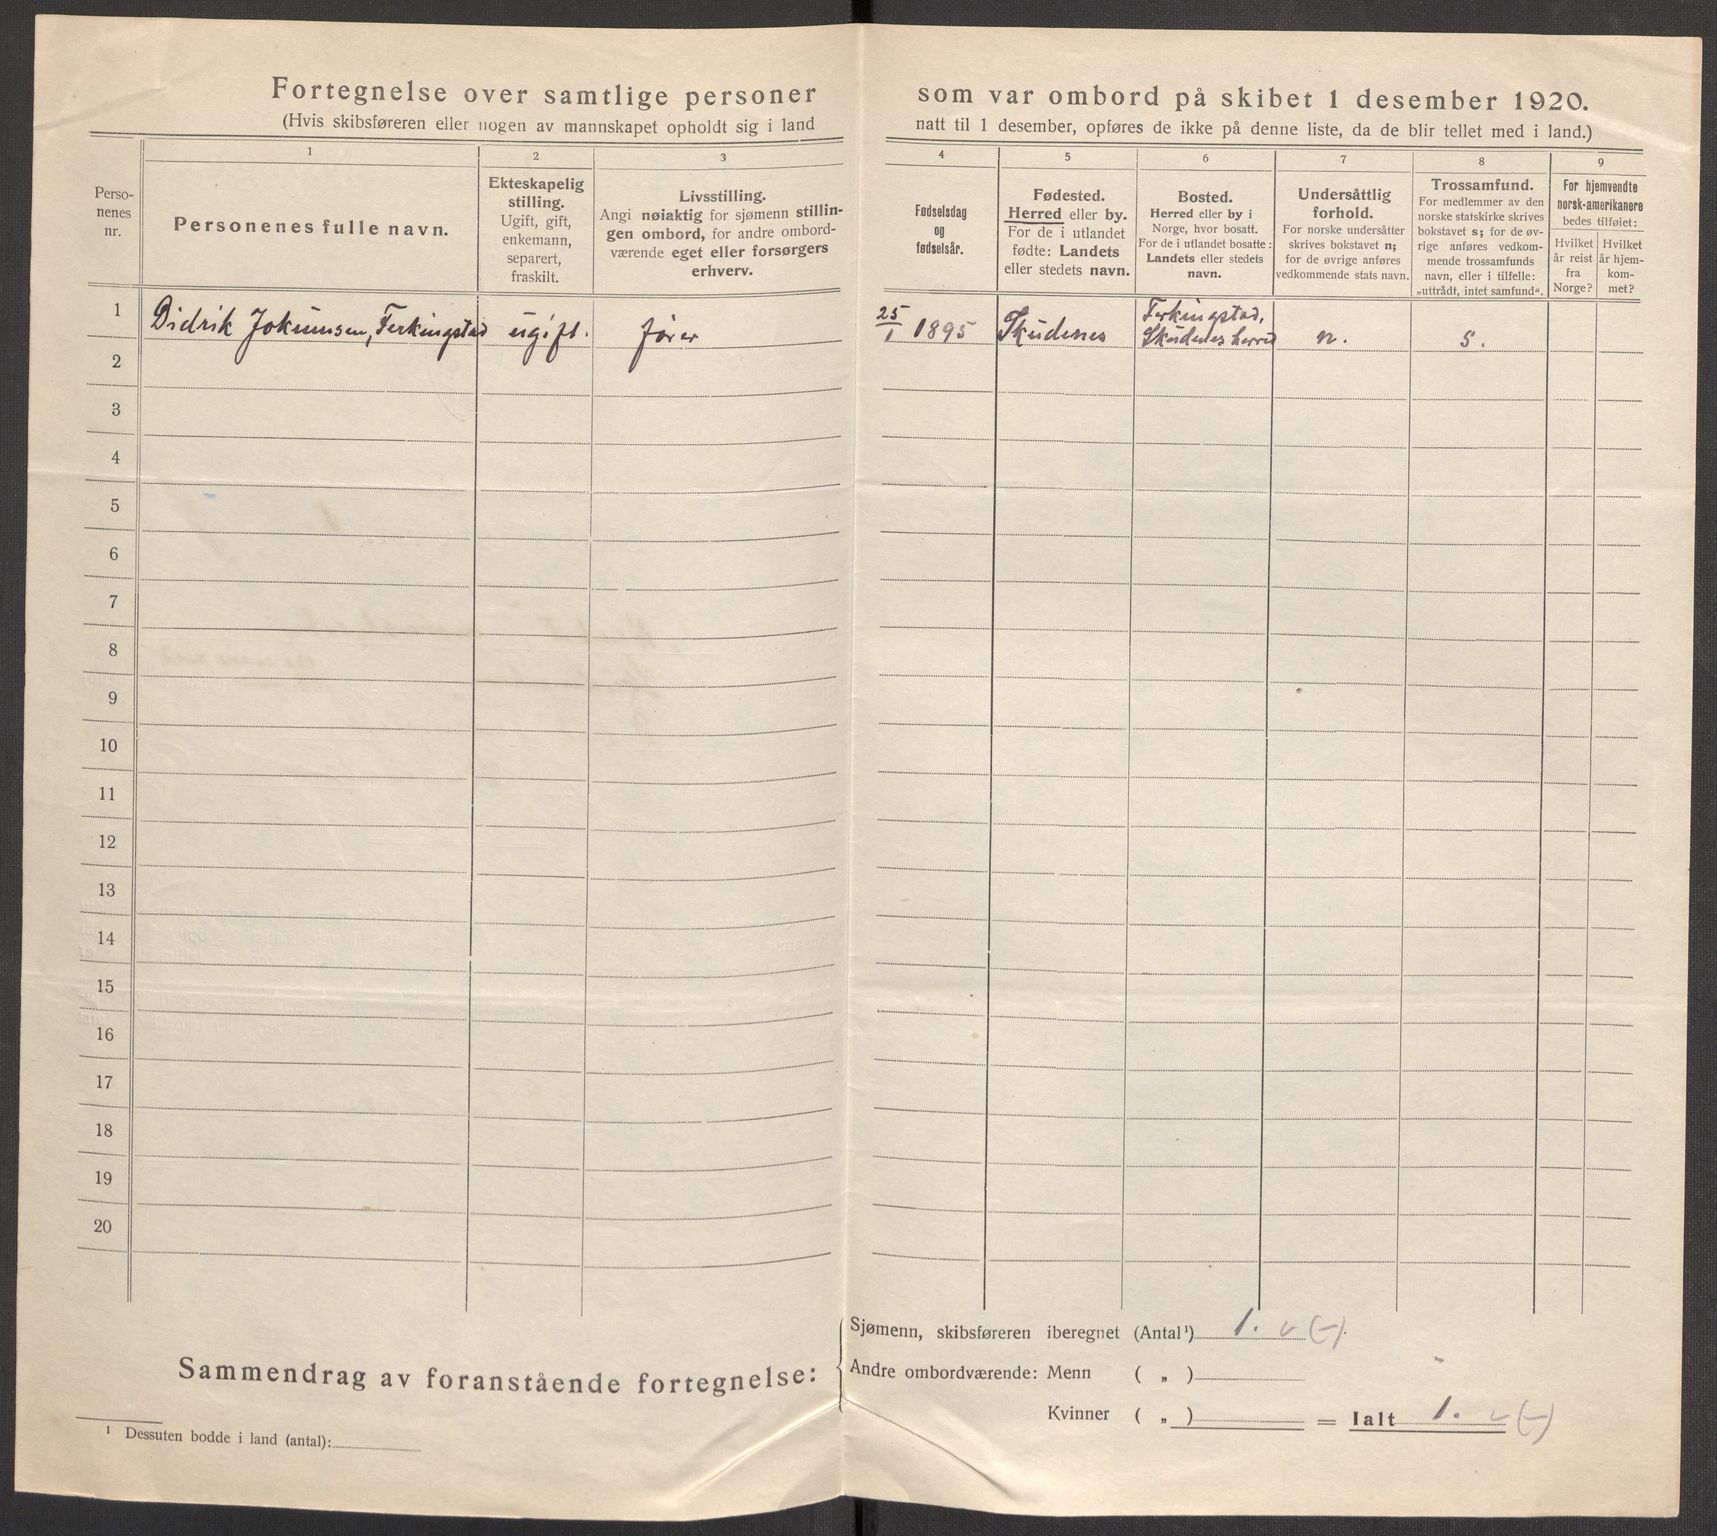 Fortegnelse over samtlige personer som var ombord på skibet 1 desember 1920.
(Hvis skibsføreren eller nogen av mannskapet opholdt sig i land natt til 1 desember, opføres de ikke på denne liste, da de blir tellet med i land.)
Perso-
nenes
nr.
1
Personenes fulle navn.
2
Ekteskapelig
stilling.
Ugift, gift,
enkemann,
separert,
fraskilt.
3
Livsstilling.
Angi nøiaktig for sjømenn stillin-
gen ombord, for andre ombord-
værende eget eller forsørgers
erhverv.
4
Fødselsdag
og
fødselsår.
5
Fødested.
Herred eller by.
For de i utlandet
fødte: Landets
eller stedets navn.
6
Bosted.
Herred eller by i
Norge, hvor bosatt.
For de i utlandet bosatte:
Landets eller stedets
navn.
7
Undersåttlig
forhold.
For norske undersåtter
skrives bokstavet n;
for de øvrige anføres
vedkommende stats navn.
8
Trossamfund.
For medlemmer av den
norske statskirke skrives
bokstavet s; for de øv-
rige anføres vedkom-
mende trossamfunds
navn, eller i tilfelle:
„uttrådt, intet samfund“.
9
For hjemvendte
norsk-amerikanere
bedes tilføiet:
Hvilket
år reist
fra
Norge?
Hvilket
år hjem-
kom-
met?
1 Didrik Jokumsen, Ferkingstad ugift. fører 25/1 1895 Skudenes Ferkingstad,
Skudenes herred n. s.
2
3
4
5
6
7
8
9
10
11
12
13
14
15
16
17
18
19
20
Sammendrag av foranstående fortegnelse:
Sjømenn, skibsføreren iberegnet (Antal¹) 1. (-)
Andre ombordværende: Menn ( „ )
Kvinner ( „ ) = Ialt 1. (-)
¹ Dessuten bodde i land (antal):